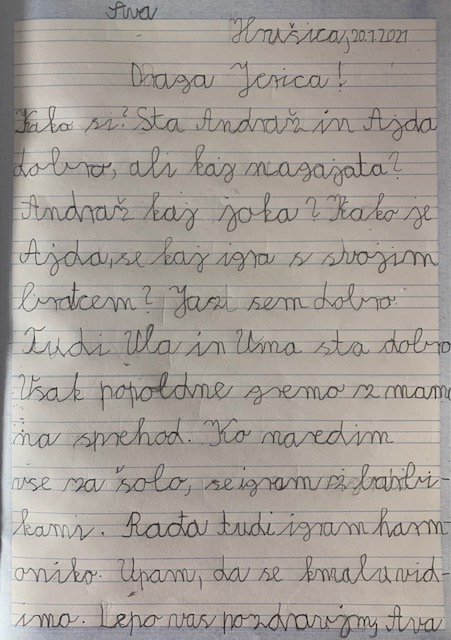 Ava
Hrušica, 20.1.2021
Draga Jerica!
Kako si? Sta Andraž in Ajda
dobro, ali kaj nagajata?
Andraž kaj joka? Kako je
Ajda, se kaj igra s svojim
bratcem? Jaz sem dobro.
Tudi Ula in Uma sta dobro
Vsak popoldne gremo z mamo
na sprehod. Ko naredim
vse za šolo, se igram z barbi-
kami. Rada tudi igram harm-
oniko. Upam, da se kmalu vid-
imo. Lepo vas pozdravjm, Ava